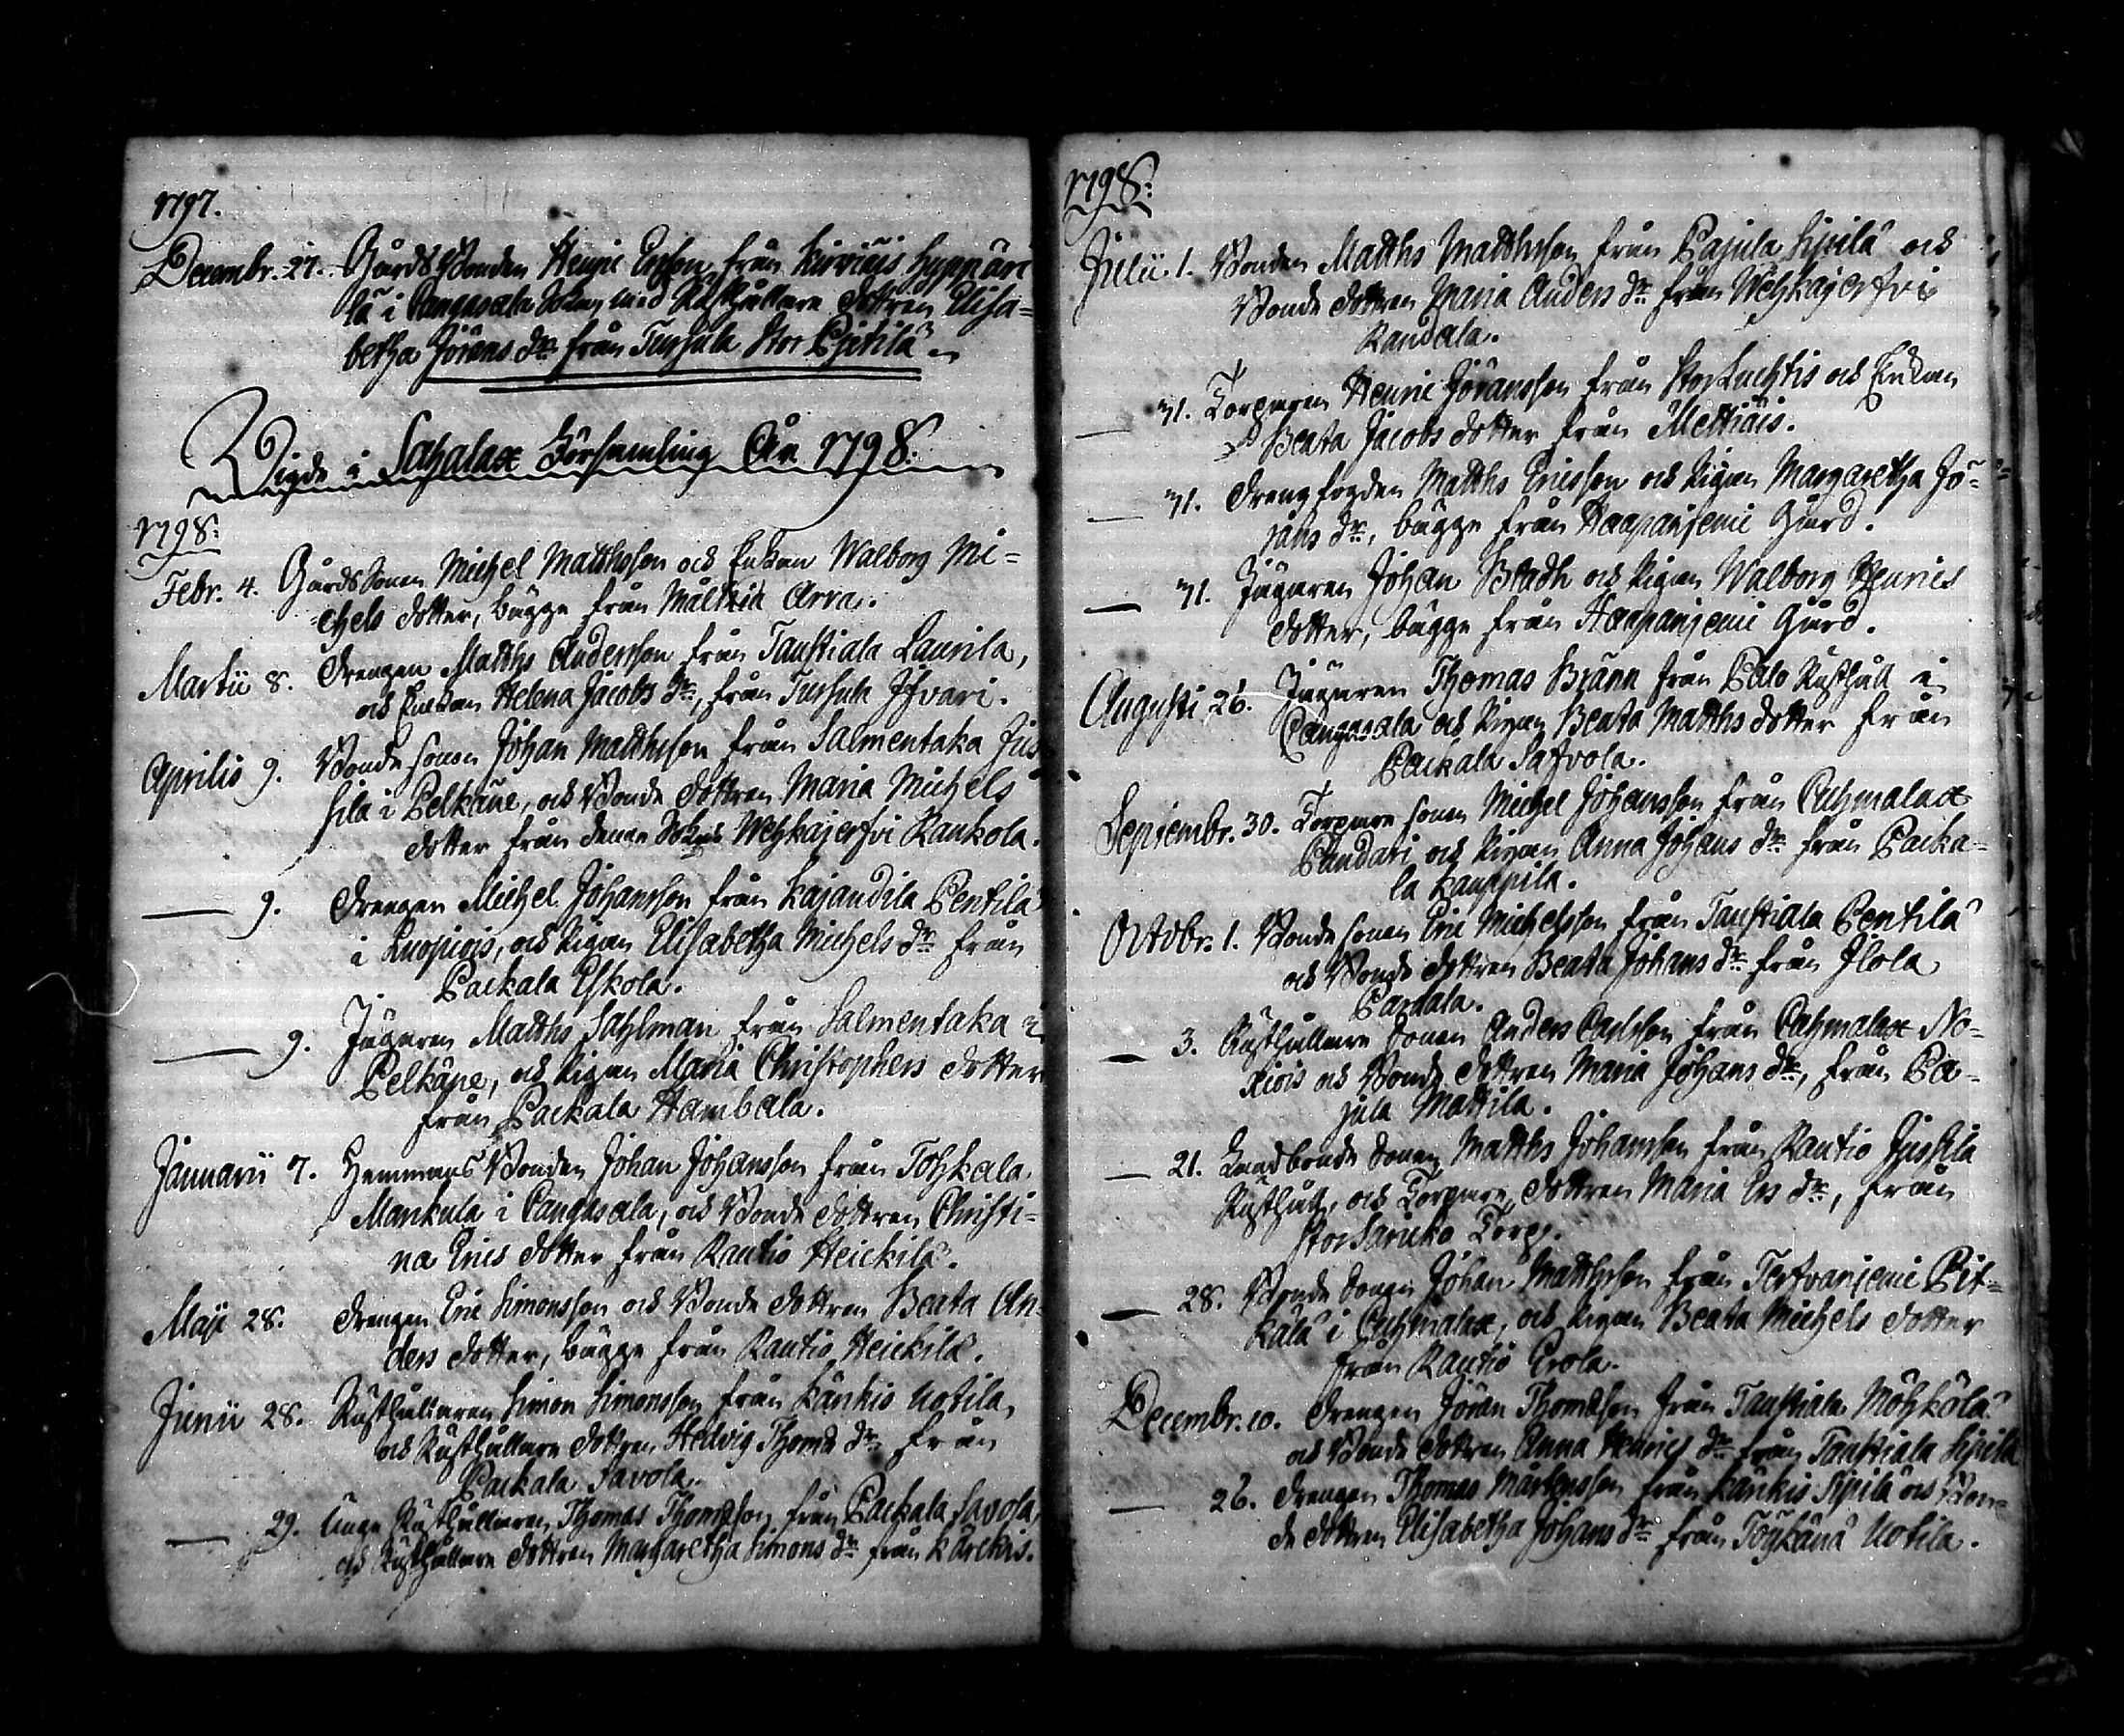 1797.
Decembr. 27. Gårds Bonden Henric Ersson från Kirviais Huppäri
lä i Cangasala Sokn, med Rusthållare dottren Elisa=
betha Jörans dr. från Tursula Stor Pijtilä
Wigde i Sahalax Församling År 1798.
1798.
Febr. 4. Gårds Sonen Michel Matthsson och Enkan Walborg Mi=
chels dotter, bägge från Arra.
Martii 8. Drengen Matths Andersson från Taustiala Laurila,
och Enkan Helena Jacobs dr., från Tursula Ifvari.
Aprilis 9. Bonde sonen Johan Matthsson från Salmentaka Jus
sila i Pelkäne, och Bonde dottren Maria Michels
dotter från denne Sokns Wehkajerfvi Kaukola.
— 9. Drengen Michel Johansson från Kajandila Pentilä
i Luopiois, och Pigan Elisabetha Michels dr. från
Packala Eskola.
— 9. Jägaren Matths Sahlman från Salmentaka i
Pelkäne, och Pigan Maria Christophers dotter
från Packala Hambala.
Januarii 7. Hemmans Bonden Johan Johansson från Tohkala
Mankula i Cangasala, och Bonde dottren Christi=
na Erics dotter från Rautio Heickilä.
Maji 28. Drengen Eric Simonsson och Bonde dottren Beata An=
ders dotter, bägge från Rautio Heickilä.
Junii 28. Rusthållaren Simon Simonsson från Känkis Uotila,
och Rusthållare dottren Hedvig Thomæ dr. från
Packala Savola.
— 29. Unge Rusthållaren Thomas Thomasson från Packala Savola,
och Rusthållare dottren Margaretha Simons dr. från Känkis.
1798.
Julii 1. Bonden Matths Matthsson från Pajula Sipilä och
Bonde dottren Maria Anders dr. från Wehkajerfvi
Kandala.
— 71. Torparen Henric Jöransson från Stor Luchtis och Enkan
Beata Jacobs dotter från Mettiäis.
— 71. Drengfogden Matths Ericsson och Pigan Margaretha Jö=
rans dr., bägge från Haapanjemi Gård.
— 71. Jägaren Johan Bladh och Pigan Walborg Henrics
dotter, bägge från Haapanjemi Gård.
Augusti 26. Jägaren Thomas Bränn från Palo Rusthåll i
Cangasala och Pigan Beata Matths dotter från
Packala Safvola.
Septembr. 30. Torpare sonen Michel Johansson från Cuhmalax
Pendari och Pigan Anna Johans dr. från Packa=
la Kauppila.
Octobr. 1. Bonde sonen Eric Michelsson från Taustiala Pentilä
och Bonde dottren Beata Johans dr. från Ilola
Pardala.
— 3. Rusthållare Sonen Anders Carlsson från Cuhmalax No=
kiois och Bonde dottren Maria Johans dr., från Pa=
jula Mattila.
— 21. Landbonde Sonen Matths Johansson från Rautio Jussila
Rusthåll, och Torpare dottren Maria Ers dr., från
Stor Sariko Torp.
— 28. Bonde Sonen Johan Matthsson från Tervanjemi Pit=
kälä i Cuhmalax, och Pigan Beata Michels dotter
från Rautio Erola.
Decembr. 10. Drengen Jöran Thomasson från Taustiala Möhkölä
och Bonde dottren Anna Henrics dr. från Taustiala Sipilä
— 26. Drengen Thomas Mårtensson från Känkis Sipilä och Bon=
de dottren Elisabetha Johans dr. från Töykänä Uotila.